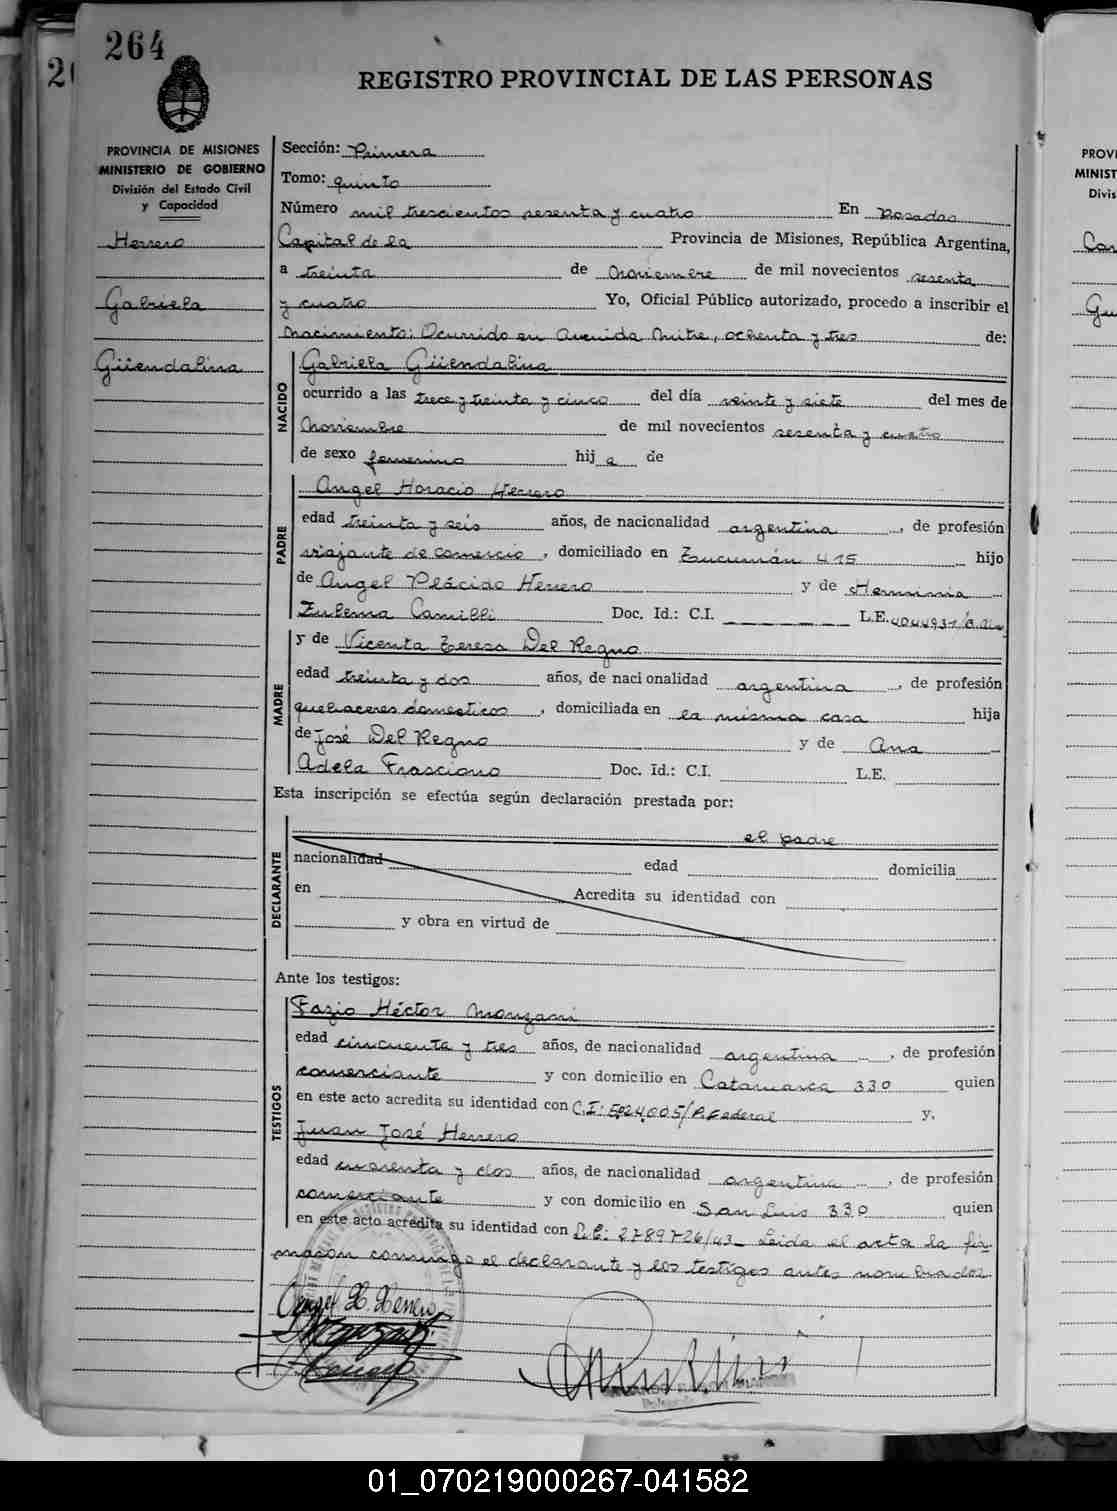 264
REGISTRO PROVINCIAL DE LAS PERSONAS
PROVINCIA DE MISIONES
MINISTERIO DE GOBIERNO
División del Estado Civil
y Capacidad
Herrero
Gabriela
Güendalina
Sección: Primera
Tomo: quinto
Número mil trescientos sesenta y cuatro En Posadas
Capital de la Provincia de Misiones, República Argentina,
a treinta de noviembre de mil novecientos sesenta
y cuatro Yo, Oficial Público autorizado, procedo a inscribir el
nacimiento: Ocurrido en Avenida Mitre, ochenta y tres de:
NACIDO
Gabriela Güendalina
ocurrido a las trece y treinta y cinco del día veinte y siete del mes de
noviembre de mil novecientos sesenta y cuatro
de sexo femenino hij a de
PADRE
Angel Horacio Herrero
edad treinta y seis años, de nacionalidad argentina, de profesión
viajante de comercio, domiciliado en Tucumán 415 hijo
de Angel Plácido Herrero y de Herminia
Zulema Camilli Doc. Id.: C.I. L.E. 4044931
MADRE
y de Vicenta Teresa Del Regno
edad treinta y dos años, de nacionalidad argentina, de profesión
quehaceres domesticos, domiciliada en la misma casa hija
de José Del Regno y de Ana
Adela Frasciono Doc. Id.: C.I. L.E.
Esta inscripción se efectúa según declaración prestada por:
DECLARANTE
el padre
nacionalidad edad domicilia
en Acredita su identidad con
y obra en virtud de
Ante los testigos:
TESTIGOS
Fazio Héctor Monzani
edad cincuenta y tres años, de nacionalidad argentina, de profesión
comerciante y con domicilio en Catamarca 330 quien
en este acto acredita su identidad con C.I: 5024005/P.Federal y,
Juan José Herrero
edad cuarenta y dos años, de nacionalidad argentina, de profesión
comerciante y con domicilio en San Luis 330 quien
en este acto acredita su identidad con L.E: 2789726/43_ Leída el acta la fir-
maron conmigo el declarante y los testigos antes nombrados.
Angel H. Herrero
PROVI
MINIST
Divis
01_070219000267-041582